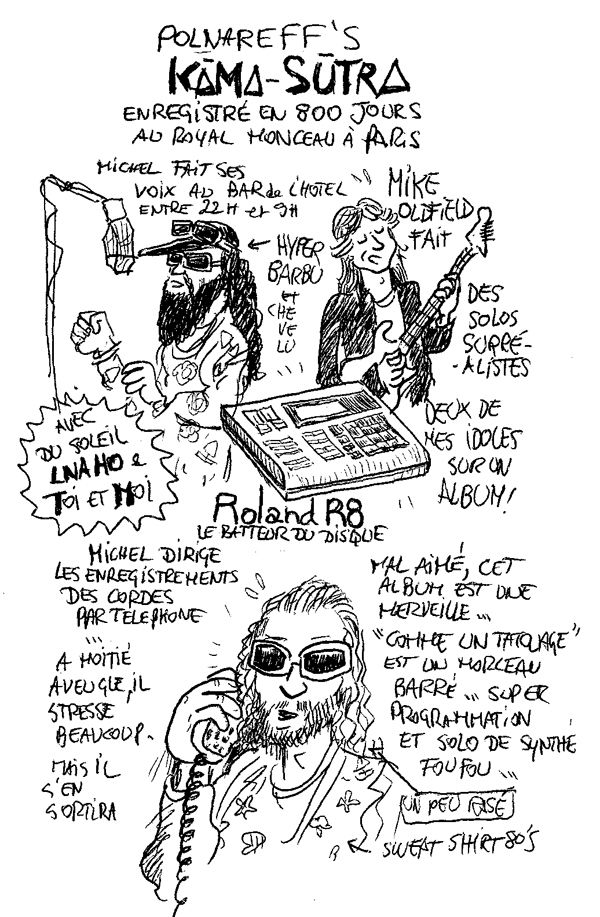 POLNAREFF'S
KĀMA-SŪTRA
ENREGISTRÉ EN 800 JOURS
AU ROYAL MONCEAU À PARIS
MICHEL FAIT SES
VOIX AU BAR de L'HOTEL
ENTRE 22H et 9H
HYPER
BARBU
et
CHE
VE
LU
MIKE
OLDFIELD
FAIT
DES
SOLOS
SURRÉ-
-ALISTES
DEUX DE
MES IDOLES
SUR UN
ALBUM!
AVEC
DU SOLEIL
LNA HO &
TOI ET MOI
Roland R8
LE BATTEUR DU DISQUE
MICHEL DIRIGE
LES ENREGISTREMENTS
DES CORDES
PAR TELEPHONE
...
A MOITIÉ
AVEUGLE, il
STRESSE
BEAUCOUP.
MAIS IL
S'EN
SORTIRA
MAL AIMÉ, CET
ALBUM EST UNE
MERVEILLE...
"COMME UN TATOUAGE"
EST UN MORCEAU
BARRÉ... SUPER
PROGRAMMATION
ET SOLO DE SYNTHÉ
FOUFOU...
UN PEU RASÉ
SWEAT SHIRT 80'S